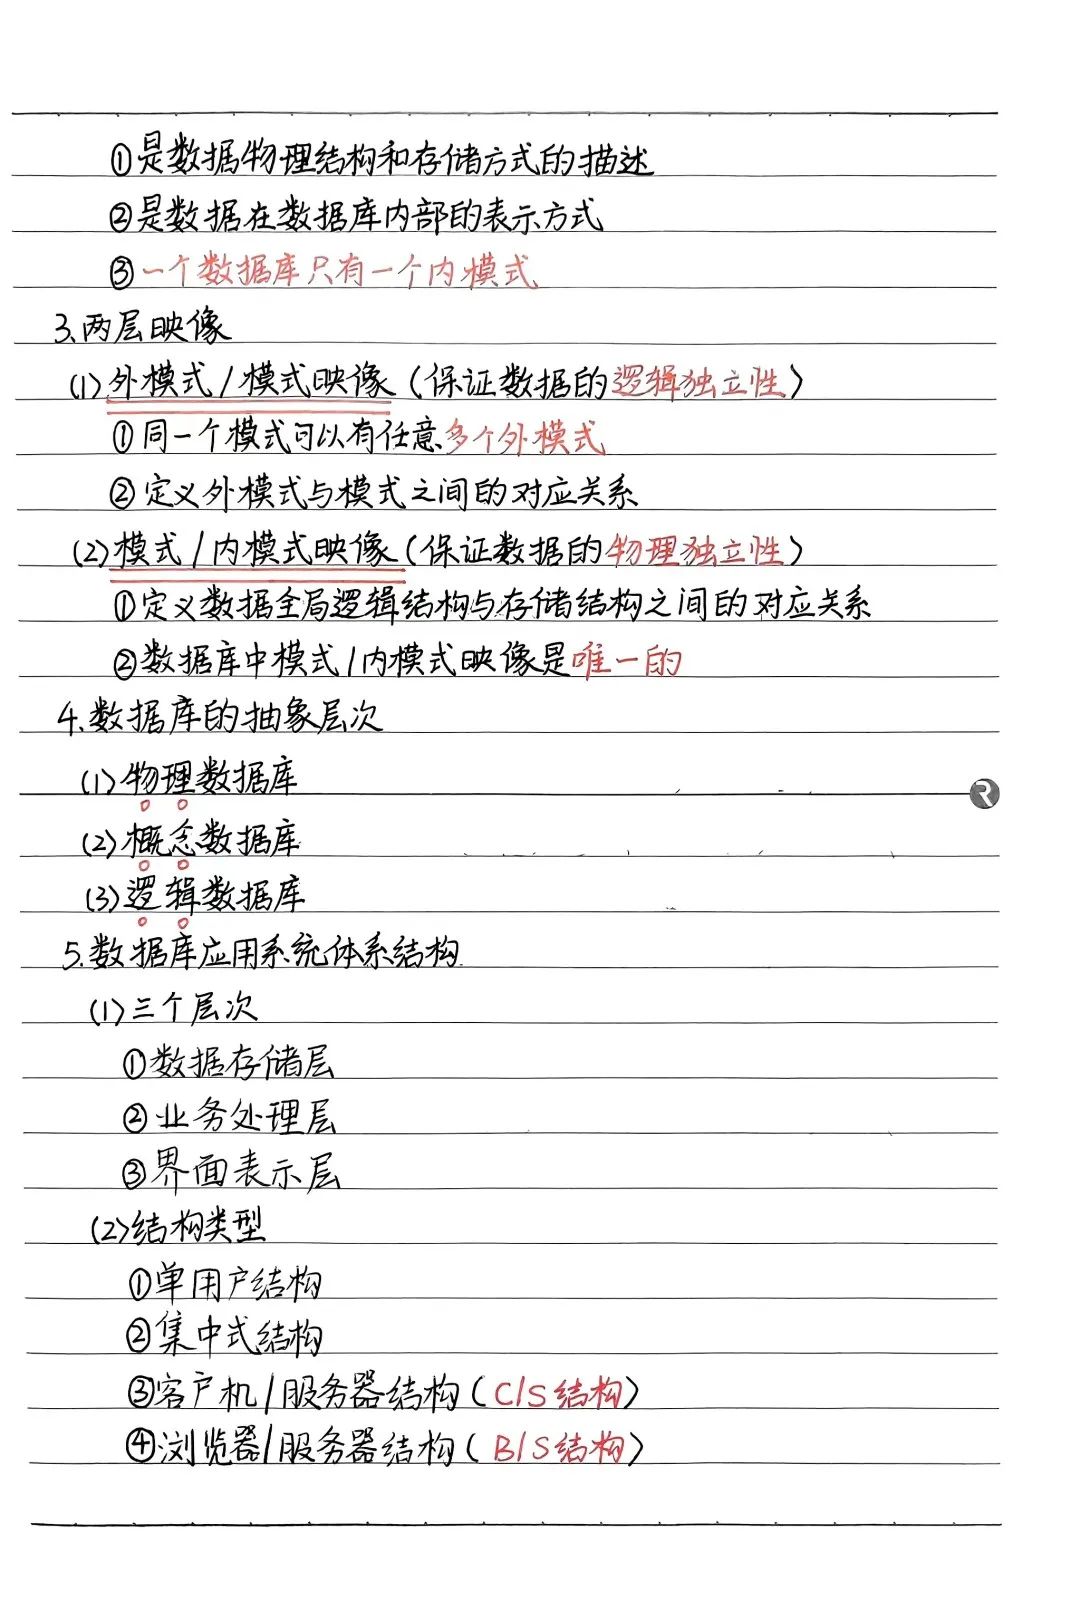 ①是数据物理结构和存储方式的描述
②是数据在数据库内部的表示方式
③一个数据库只有一个内模式
3.两层映像
(1)外模式/模式映像(保证数据的逻辑独立性)
①同一个模式可以有任意多个外模式
②定义外模式与模式之间的对应关系
(2)模式/内模式映像(保证数据的物理独立性)
①定义数据全局逻辑结构与存储结构之间的对应关系
②数据库中模式/内模式映像是唯一的
4.数据库的抽象层次
(1)物理数据库
(2)概念数据库
(3)逻辑数据库
5.数据库应用系统体系结构
(1)三个层次
①数据存储层
②业务处理层
③界面表示层
(2)结构类型
①单用户结构
②集中式结构
③客户机/服务器结构(C/S结构)
④浏览器/服务器结构(B/S结构)